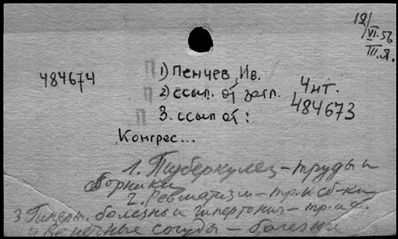 12/VI.56
III.Я.
484674
П 1) Пенчев, Ив.
П 2) ссыл. от загл.
П 3. ссыл от:
4 чт.
484673
Конгрес...
1. Туберкулез - труды и
сборники
2. Ревматизм - тр. и сб-ки
3 Гиперт. болезнь и гипертония - тр. и
и венечные сосуды - болезни